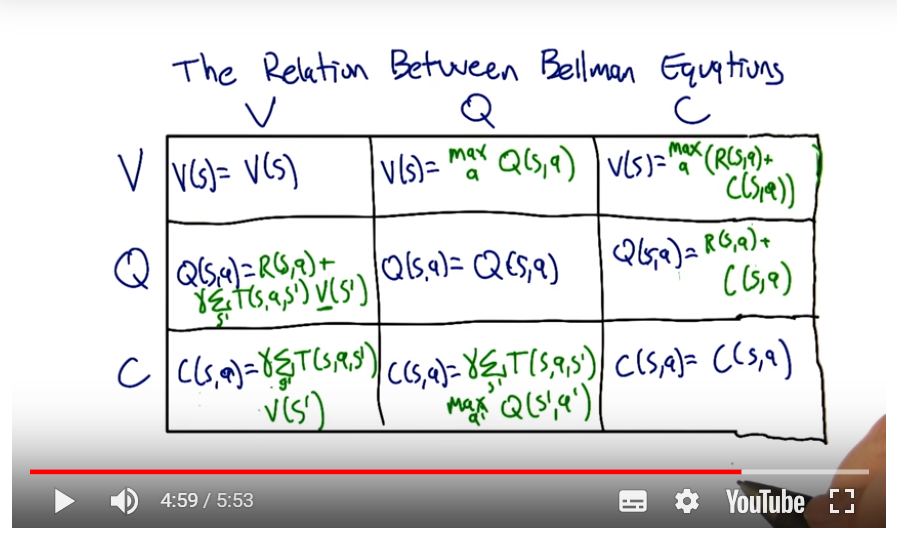 The Relation Between Bellman Equations
V Q C
V V(s)= V(s) V(s)= max a Q(s,a) V(s)= max a (R(s,a)+ C(s,a))
Q Q(s,a)= R(s,a)+ γ∑s' T(s,a,s') V(s') Q(s,a)= Q(s,a) Q(s,a)= R(s,a)+ C(s,a)
C C(s,a)= γ∑s' T(s,a,s') V(s') C(s,a)= γ∑s' T(s,a,s') max a' Q(s',a') C(s,a)= C(s,a)
4:59 / 5:53 YouTube